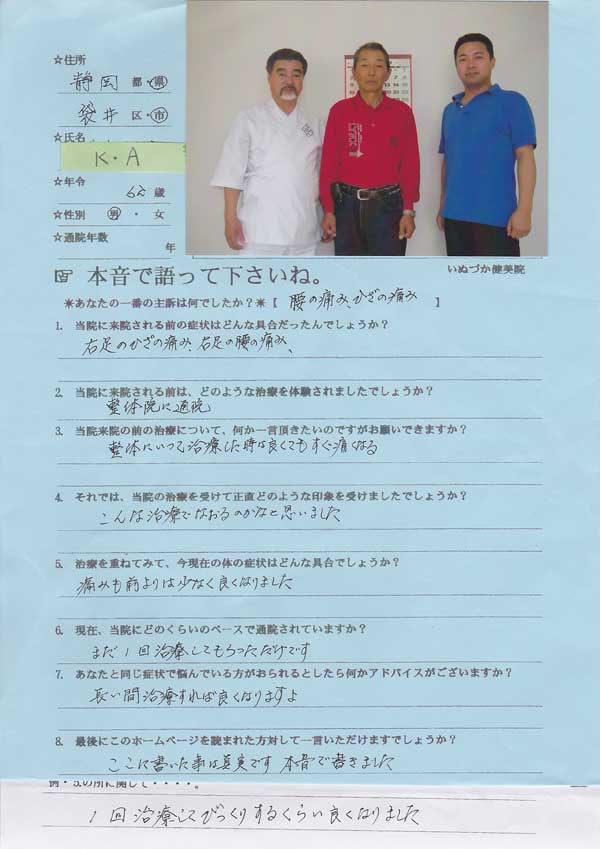 ☆住所
静岡 都・県
袋井 区・市
☆氏名
K・A
☆年令
62 歳
☆性別 男・女
☆通院年数
年
いぬづか健美院
☞ 本音で語って下さいね。
＊あなたの一番の主訴は何でしたか？＊【 腰の痛み、ひざの痛み 】
1. 当院に来院される前の症状はどんな具合だったんでしょうか？
右足のひざの痛み、右足の腰の痛み、
2. 当院に来院される前は、どのような治療を体験されましたでしょうか？
整体院に通院
3. 当院来院の前の治療について、何か一言頂きたいのですがお願いできますか？
整体にいって治療した時は良くてもすぐ痛くなる
4. それでは、当院の治療を受けて正直どのような印象を受けましたでしょうか？
こんな治療でなおるのかなと思いました
5. 治療を重ねてみて、今現在の体の症状はどんな具合でしょうか？
痛みも前よりは少なく良くなりました
6. 現在、当院にどのくらいのペースで通院されていますか？
まだ1回治療してもらっただけです
7. あなたと同じ症状で悩んでいる方がおられるとしたら何かアドバイスがございますか？
長い間治療すれば良くなりますよ
8. 最後にこのホームページを読まれた方対して一言いただけますでしょうか？
ここに書いた事は真実です 本音で書きました
例・5.の所に関して・・・・。
1回治療してびっくりするくらい良くなりました